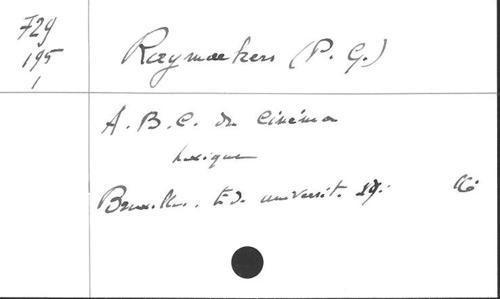 729
195
1
Raymaekers (P. G.)
A. B. C. du Cinéma
Lexique
Bruxelles. Ed. universit.